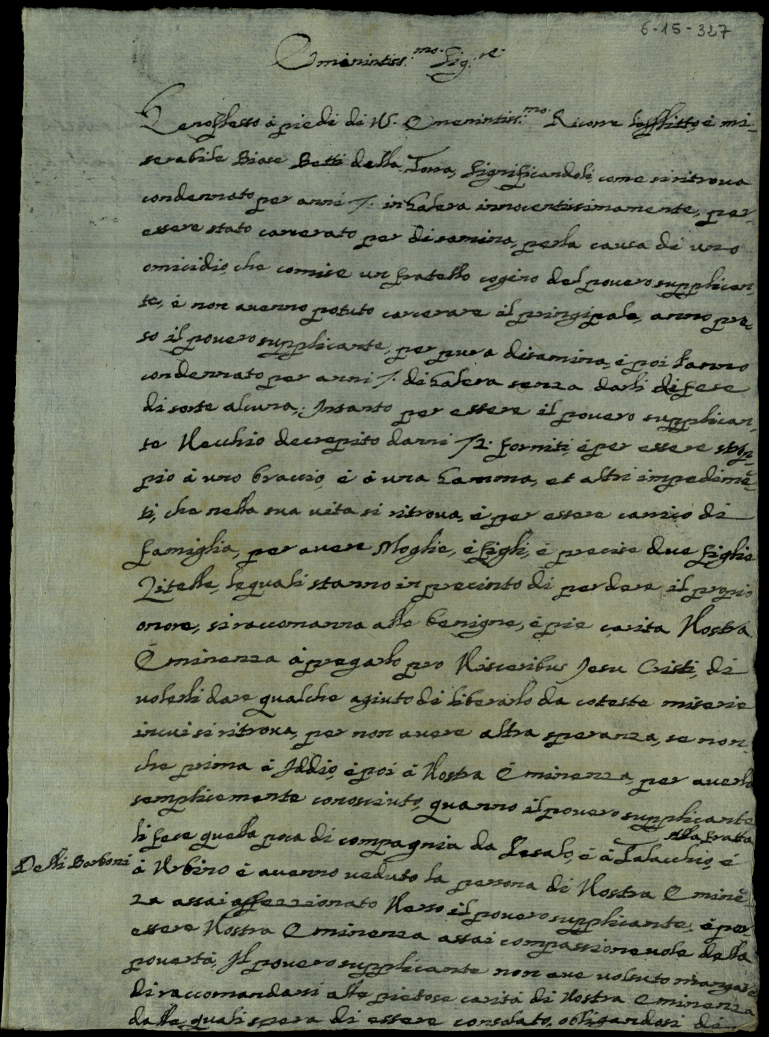 6-15-327
Eminentiss.mo Sig.re
Genoflesso à piedi di V. Eminentiss.mo Ricorre l'afflitto, è mi-
serabile Biase Betti della Torra, significandoli come si ritrova
condennato per anni 7. in Galera innocentissimamente, per
essere stato carcerato per disamina, per la causa di uno
omicidio, che comise un fratello cogino del povero supplican-
te, è non avenno potuto carcerare il principale, anno pre-
so il povero supplicante, per pura disamina, è poi l'anno
condennato per anni 7. di Galera senza darli difese
di sorte alcuna; Intanto per essere il povero supplican-
te Vecchio decrepito d'anni 72. forniti, è per essere strop-
pio à uno braccio, è à una Gamma, et altri impedimē-
ti, che nella sua vita si ritrova, è per essere carico di
famiglia, per avere Moglie, è figli, è precise due figlie
Zitelle, le quali stanno in precinto di perdere il proprio
onore, si raccomanna alle benigne, è pie carita Vostra
Eminenza à pregarlo pro Visceribus Jesu Cristi, di
volerli dare qualche agiuto di liberarlo da coteste miserie
in cui si ritrova, per non avere altra speranza, se non
che prima à Iddio, è poi à Vostra Eminenza, per averlo
semplicemente conosciuto, quanno il povero supplicante
li fece quella poca di compagnia da Pesalo, è à Talacchio, è
alla Fratta
Delli Barboni
à Urbino è avenno veduto la persona di Vostra Eminē-
za assai affezzionato Verso il povero supplicante, è per
essere Vostra Eminenza assai compassionevole della
povertà, Il povero supplicante non ave voluto mancare
di raccomandarsi alle pietose carità di Vostra Eminenza
dalle quali spera di essere consolato, obligandosi di